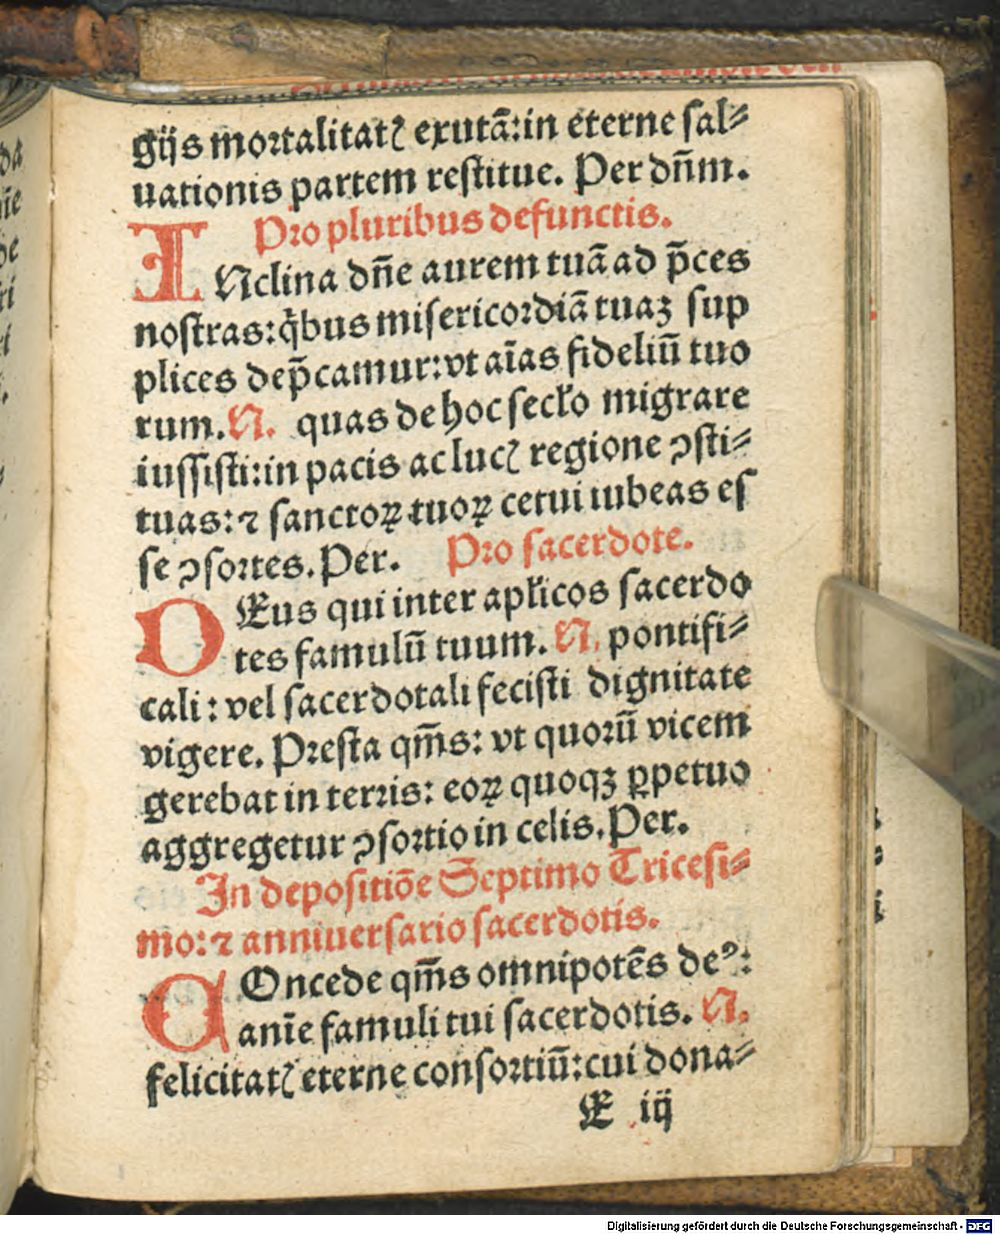 gijs mortalitatꝭ exutã: in eterne sal⸗
uationis partem restitue. Per dñm.
Pro pluribus defunctis.
INclina dñe aurem tuã ad p̃ces
nostras: q̇bus misericordiã tuaꝫ sup
plices dep̃camur: vt aĩas fideliũ tuo
rum. N. quas de hoc secľo migrare
iussisti: in pacis ac lucꝭ regione ꝯsti⸗
tuas: ⁊ sanctoꝝ tuoꝝ cetui iubeas es
se ꝯsortes. Per. Pro sacerdote.
DEus qui inter apľicos sacerdo
tes famulũ tuum. N. pontifi⸗
cali: vel sacerdotali fecisti dignitate
vigere. Presta qm̃s: vt quorũ vicem
gerebat in terris: eoꝝ quoqꝫ ꝑpetuo
aggregetur ꝯsortio in celis. Per.
In depositiõe Septimo Tricesi⸗
mo: ⁊ anniuersario sacerdotis.
COncede qm̃s omnipotẽs deꝰ:
anĩe famuli tui sacerdotis. N.
felicitatꝭ eterne consortiũ: cui dona⸗
E iij
Digitalisierung gefördert durch die Deutsche Forschungsgemeinschaft - DFG